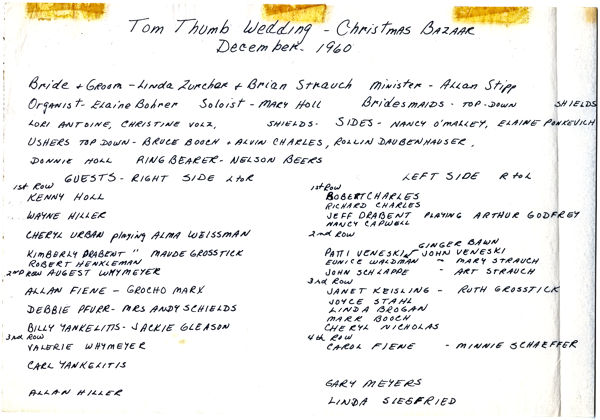 Tom Thumb Wedding - Christmas Bazaar
December - 1960
Bride + Groom - Linda Zurcher + Brian Strauch Minister - Allan Stipp
Organist - Elaine Bohrer Soloist - Mary Holl Bridesmaids - Top-Down SHIELDS
Lori Antoine, Christine Volz, SHIELDS - SIDES - Nancy O'Malley, Elaine Ponkevich
Ushers Top Down - Bruce Booch + Alvin Charles, Rollin Daubenhauser,
Donnie Holl Ring Bearer - Nelson Beers
GUESTS - RIGHT SIDE L to R
1st Row
Kenny Holl
Wayne Hiller
Cheryl Urban playing Alma Weissman
Kimberly Drabent " Maude Grosstick
Robert Henkleman
2nd Row Augest Whymeyer
Allan Fiene - Grocho Marx
Debbie Pfurr - Mrs Andy Schields
Billy Yankelitis - Jackie Gleason
3rd Row
Valerie Whymeyer
Carl Yankelitis
Allan Hiller
LEFT SIDE R to L
1st Row
Robert Charles
Richard Charles
Jeff Drabent playing Arthur Godfrey
Nancy Capwell
2nd Row
Ginger Bawn
Patti Veneski John Veneski
Eunice Waldman - Mary Strauch
John Schlappe - Art Strauch
3rd Row
Janet Keisling - Ruth Grosstick
Joyce Stahl
Linda Brogan
Mark Booch
Cheryl Nicholas
4th Row
Carol Fiene - Minnie Schaeffer
Gary Meyers
Linda Siegfried